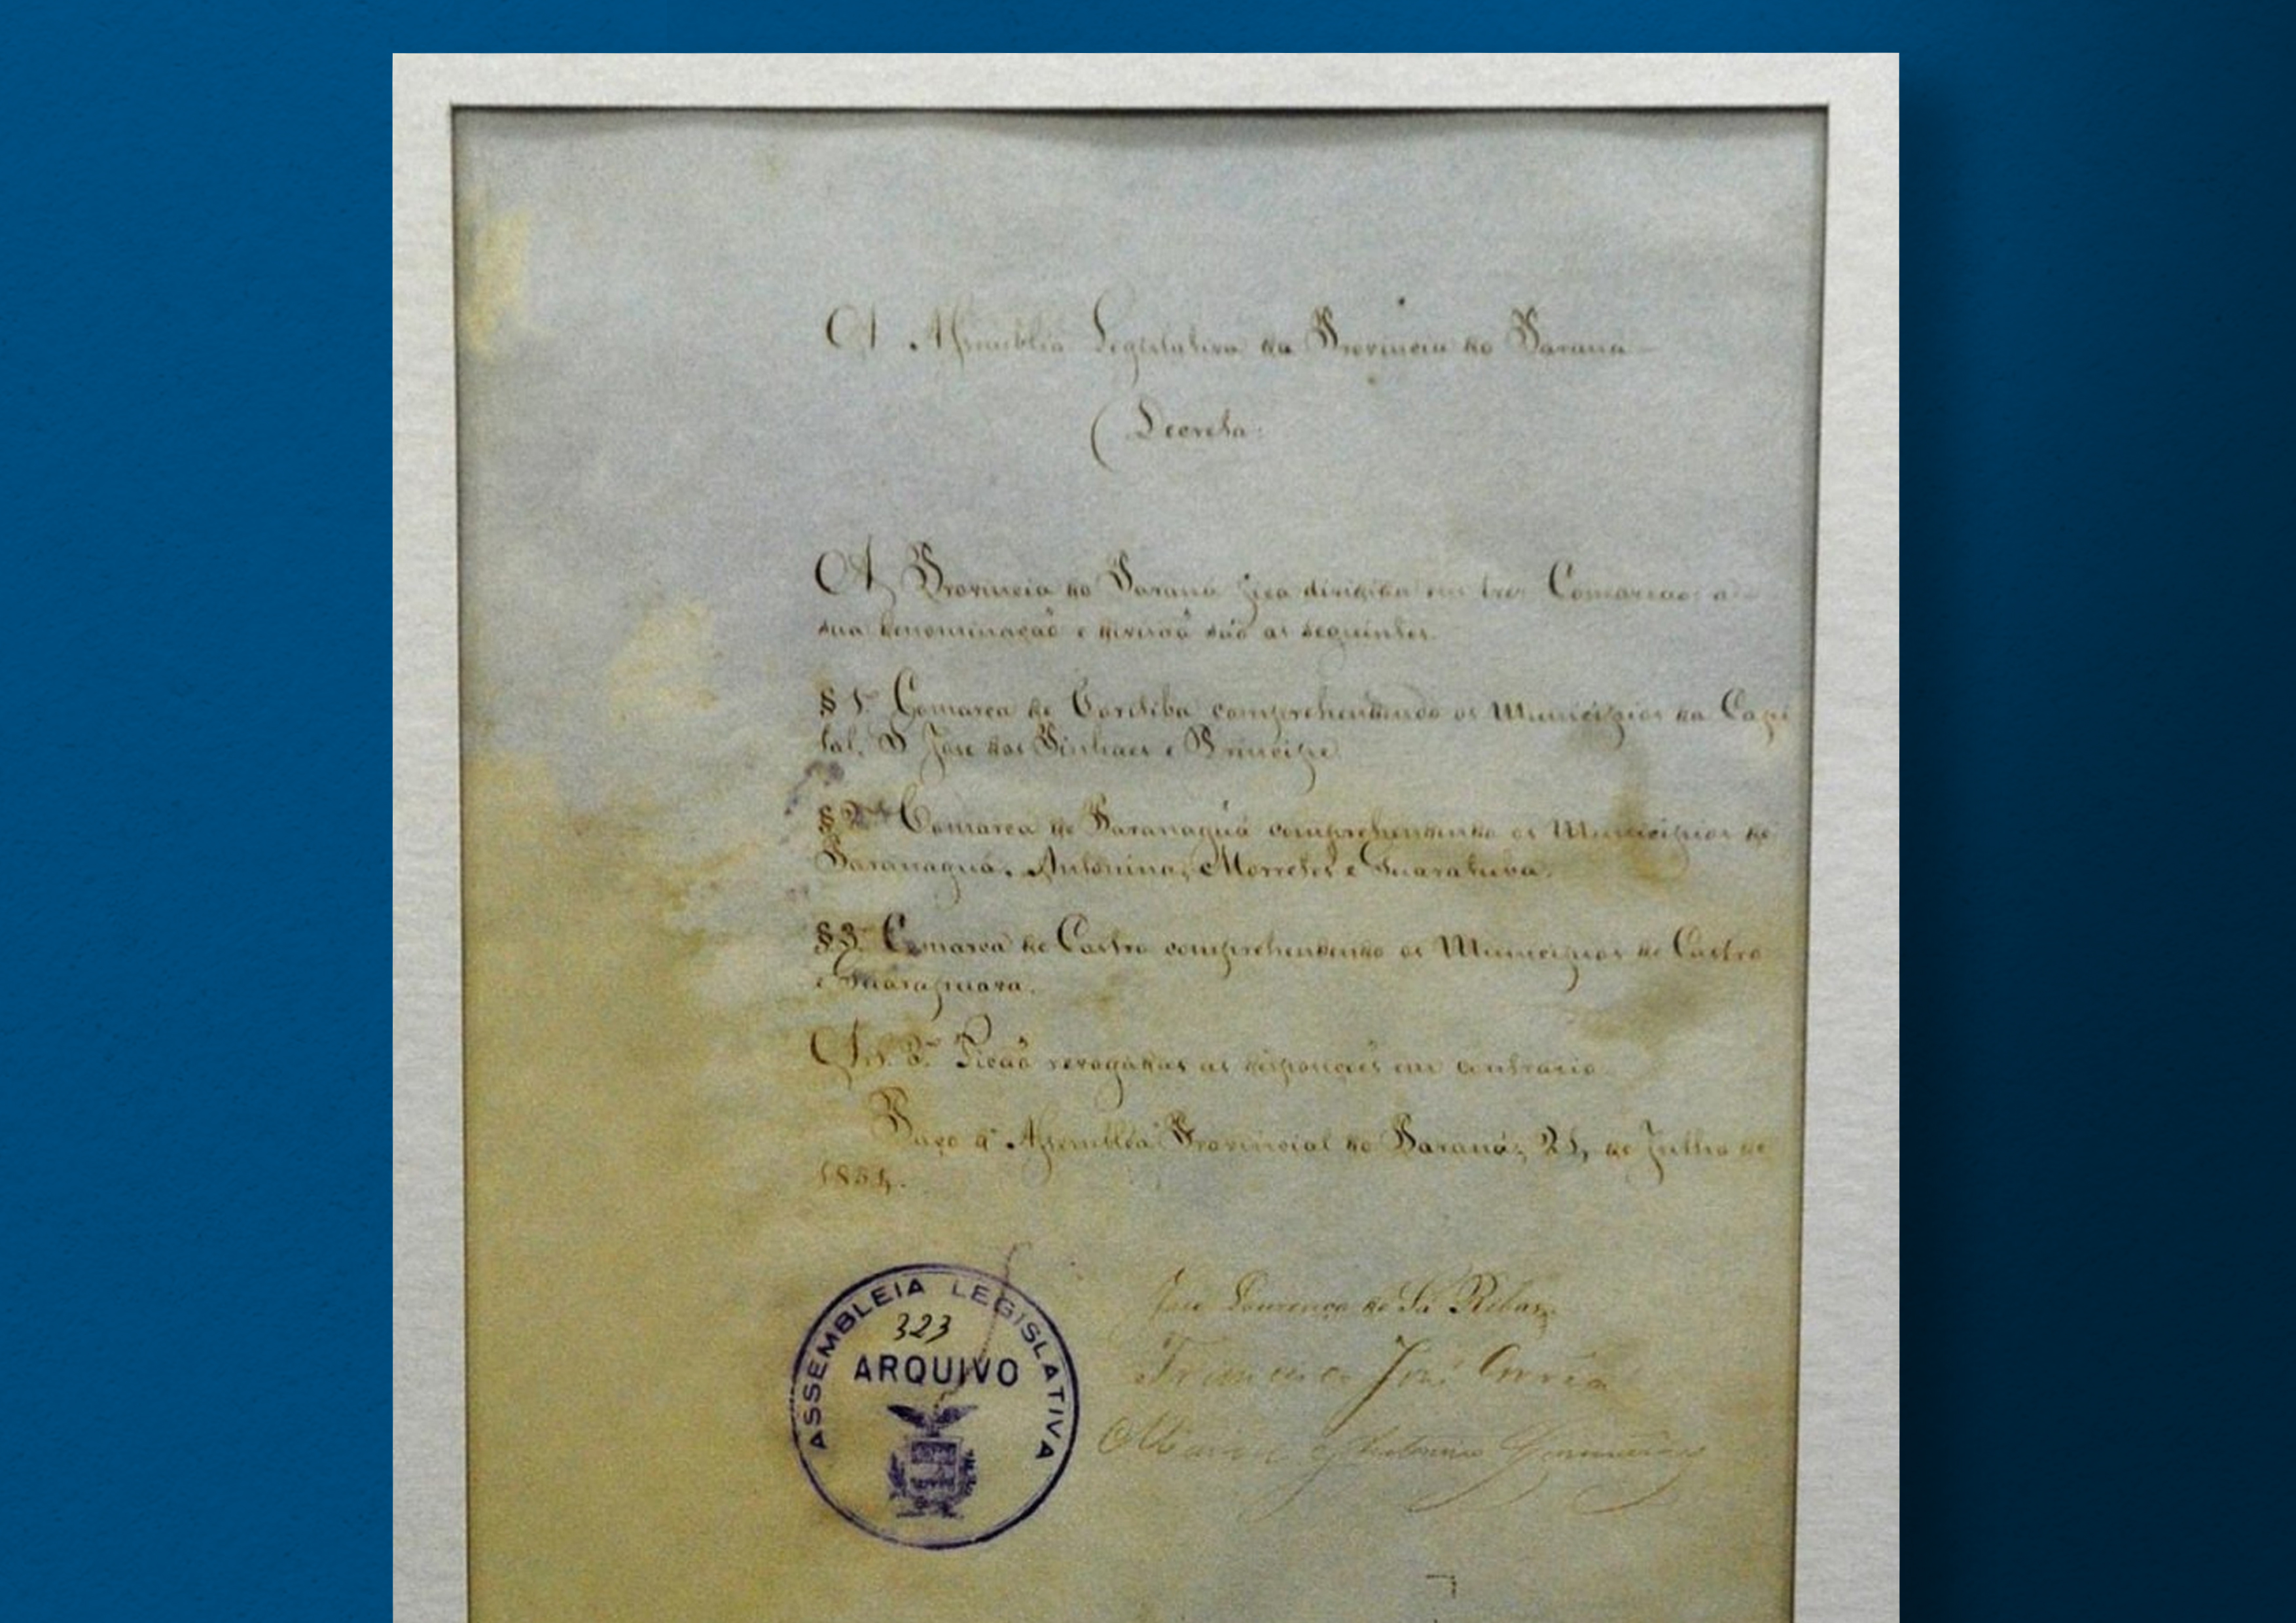 A Assembléa Legislativa da Provincia do Paraná
Decreta:
A Provincia do Paraná fica dividida em tres Comarcas, a
sua denominação e divisão são as seguintes.
§ 1º Comarca de Coritiba comprehendendo os Municipios da Capi
tal, S. José dos Pinhaes e Principe.
§ 2º Comarca de Paranaguá comprehendendo os Municipios de
Paranaguá, Antonina, Morretes e Guaratuba.
§ 3º Comarca de Castro comprehendendo os Municipios de Castro
e Guarapuava.
Art. Ficão revogadas as disposições em contrario.
Paço d' Assembléa Provincial do Paraná, de Julho de
1854.
ASSEMBLEIA LEGISLATIVA
323
ARQUIVO
José Lourenço de Sá Ribas
Francisco José Corrêa
Antonio